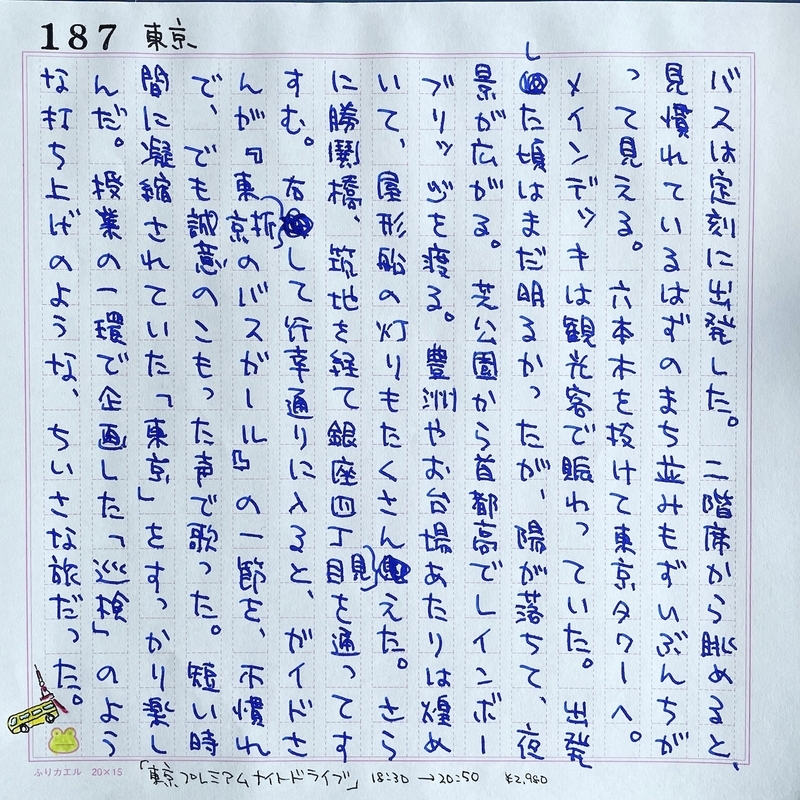 187 東京
バスは定刻に出発した。二階席から眺めると、
見慣れているはずのまち並みもずいぶんちが
って見える。六本木を抜けて東京タワーへ。
メインデッキは観光客で賑わっていた。出発
した頃はまだ明るかったが、陽が落ちて、夜
景が広がる。芝公園から首都高でレインボー
ブリッジを渡る。豊洲やお台場あたりは煌め
いて、屋形船の灯りもたくさん見えた。さら
に勝鬨橋、筑地を経て銀座四丁目を通ってす
すむ。右折して行幸通りに入ると、ガイドさ
んが『東京のバスガール』の一節を、不慣れ
で、でも誠意のこもった声で歌った。短い時
間に凝縮されていた「東京」をすっかり楽し
んだ。授業の一環で企画した「巡検」のよう
な打ち上げのような、ちいさな旅だった。
ふりカエル 20×15
「東京プレミアムナイトドライブ」 18:30 → 20:50 ¥2,980